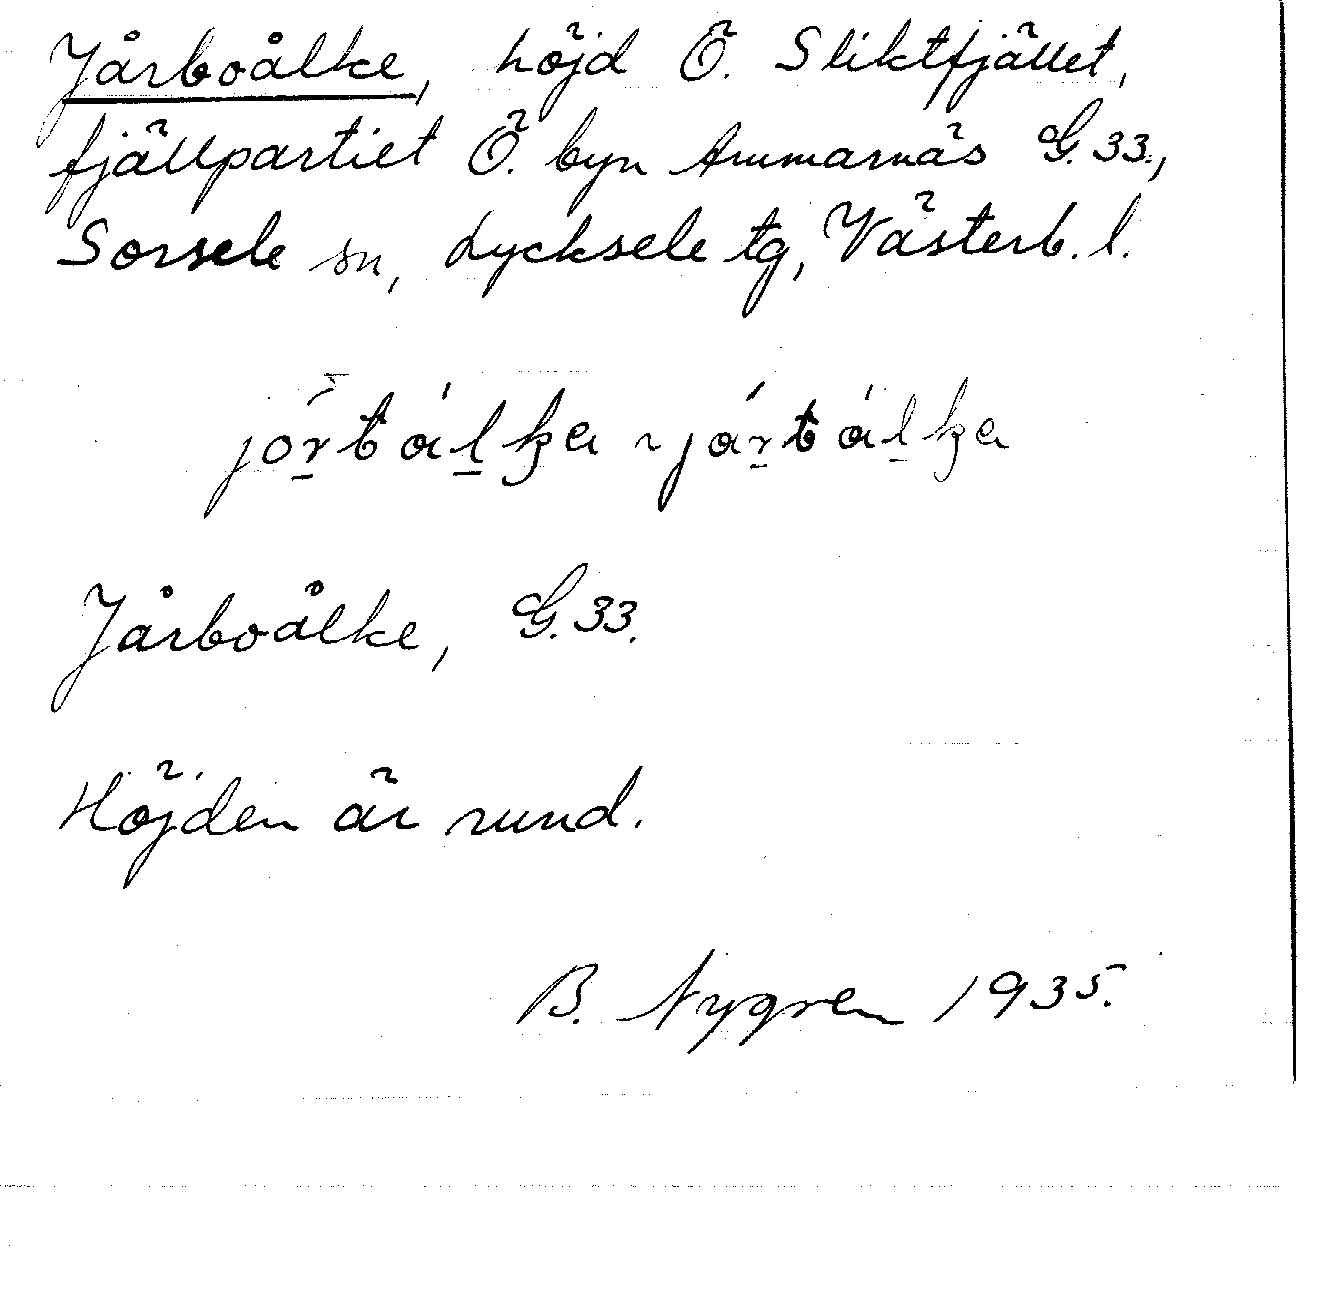 Jårboålke, höjd Ö. Sliktfjället,
fjällpartiet Ö. byn Ammarnäs G. 33.,
Sorsele sn, Lycksele tg, Västerb. l.
Jårboålke, G. 33.
Höjden är rund.
B. Nygren 1935.